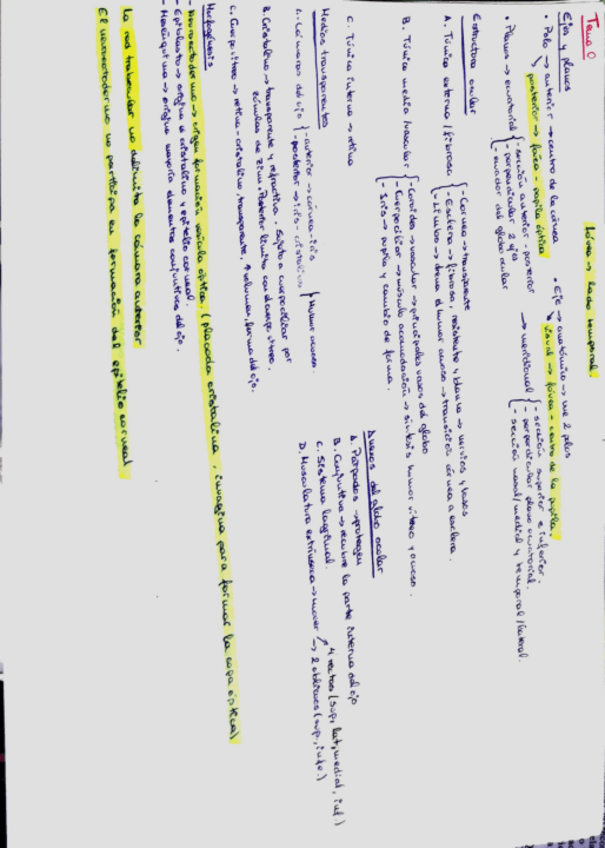 Tema 0
fóvea → lado temporal.
Ejes y planos
• Polo → anterior → centro de la córnea
posterior → fóvea - papila óptica
• Eje → anatómico → une 2 polos
visual → fóvea - centro de la pupila.
• Planos → ecuatorial - sección anterior - posterior
- perpendicular 2 ejes
- ecuador del globo ocular
→ meridional - sección superior e inferior.
- perpendicular plano ecuatorial.
- sección nasal/medial y temporal/lateral.
Estructura ocular
A. Túnica externa / fibrosa - Córnea → transparente
- Esclera → fibrosa, resistente y blanca → nervios y vasos
- Limbo → drena el humor acuoso → transición córnea a esclera.
B. Túnica media / vascular - Coroides → vascular → principales vasos del globo
- Cuerpo ciliar → músculo acomodación → síntesis humor vítreo y acuoso.
- Iris → pupila y cambio de forma.
C. Túnica interna → retina
Medios transparentes
A. Cámaras del ojo - anterior → córnea - iris
- posterior → iris - cristalino
Humor acuoso.
B. Cristalino → transparente y refractiva. Sujeto a cuerpo ciliar por
zónulas de Zinn. Posterior limita con el cuerpo vítreo.
C. Cuerpo vítreo → retina - cristalino, transparente, ↑ volumen, forma del ojo.
Anexos del globo ocular
A. Párpados → protegen
B. Conjuntiva → recubre la parte interna del ojo
C. Sistema lagrimal.
D. Musculatura extrínseca → mover → 4 rectos (sup, lat, medial, inf.)
→ 2 oblicuos (sup., infe.)
Morfogénesis
- Neuroectodermo → origen formación vesícula óptica. (placoda cristalina, invagina para formar la copa óptica)
- Epiblasto → origina el cristalino y epitelio corneal.
- Mesénquima → origina mayoría elementos conjuntivos del ojo.
La red trabecular no delimita la cámara anterior
El neuroectodermo no participa en formación del epitelio corneal